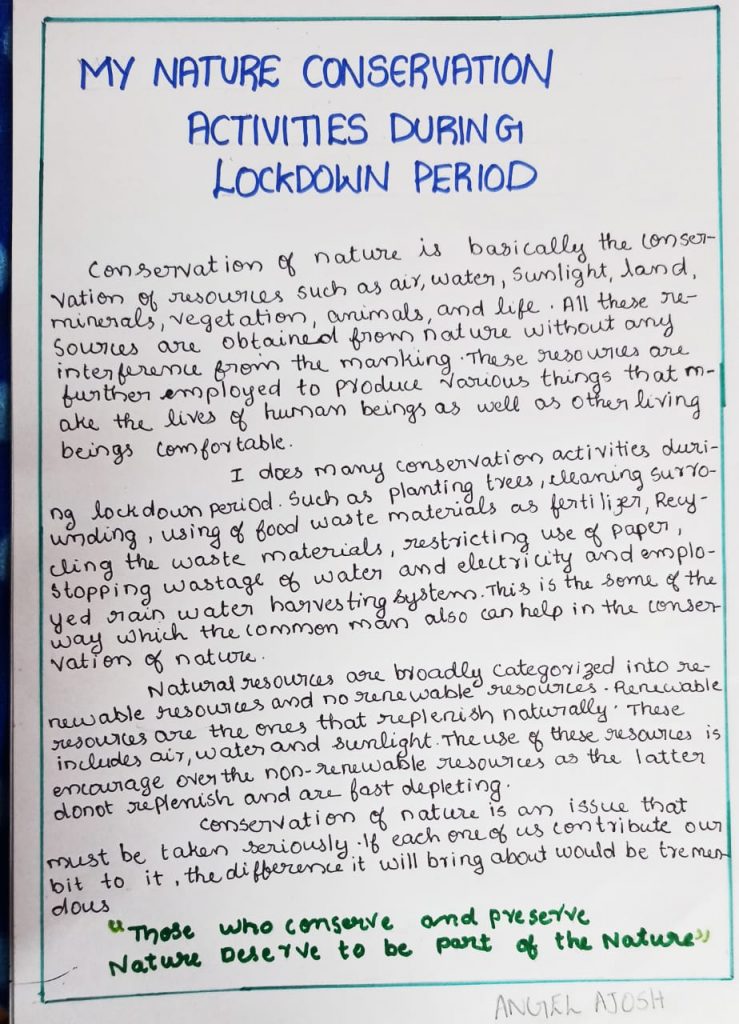 MY NATURE CONSERVATION
ACTIVITIES DURING
LOCKDOWN PERIOD
Conservation of nature is basically the conser-
vation of resources such as air, water, sunlight, land,
minerals, vegetation, animals, and life. All these re-
sources are obtained from nature without any
interference from the manking. These resources are
further employed to produce various things that m-
ake the lives of human beings as well as other living
beings comfortable.
I does many conservation activities duri-
ng lockdown period. Such as planting trees, cleaning surro-
unding, using of food waste materials as fertilizer, Recy-
cling the waste materials, restricting use of paper,
stopping wastage of water and electricity and emplo-
yed rain water harvesting system. This is the some of the
way which the common man also can help in the conser-
vation of nature.
Natural resources are broadly categorized into re-
newable resources and no renewable resources. Renewable
resources are the ones that replenish naturally. These
includes air, water and sunlight. The use of these resources is
encourage over the non-renewable resources as the latter
donot replenish and are fast depleting.
Conservation of nature is an issue that
must be taken seriously. If each one of us contribute our
bit to it, the difference it will bring about would be tremen
dous
"Those who conserve and preserve
Nature Deserve to be part of the Nature"
ANGEL AJOSH